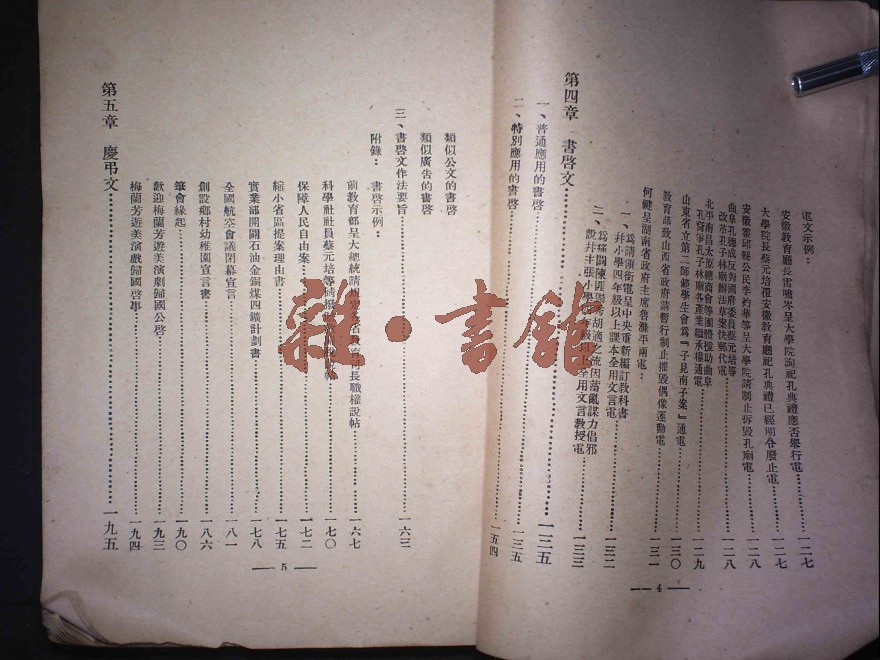 電文示例：
安徽教育廳長雷嘯岑呈大學院詢祀孔典禮應否舉行電……一二七
大學院長蔡元培覆安徽教育廳祀孔典禮已經明令廢止電……一二七
安徽霍邱縣公民李灼華等呈大學院請制止拆毀孔廟電……一二八
曲阜孔德成反對國府委員蔡元培等
改革孔子林廟辦法草案快郵代電……一二八
北平南昌太原總商會等團體援助曲阜
孔裔爭孔子林廟各產業繼承權通電……一二九
山東省立第二師範學生會為『子見南子案』通電……一三〇
教育部致山西省政府請暫行制止摧毀偶像運動電……一三一
何鍵呈湖南省政府主席魯滌平兩電：
一、為請領銜電呈中央重新編訂教科書
幷小學四年級以上課本全用文言電……一三二
二、為痛闢陳匪獨秀胡適之流因蓄亂謀力倡邪
說幷主張小學四年級以上全用文言教授電……一三三
第四章 書啓文……一三五
一、普通應用的書啓……一三五
二、特別應用的書啓……一五四
— 4 —
類似公文的書啓
類似廣告的書啓
三、書啓文作法要旨……一六三
附錄： 書啓示例：
前教育部呈大總統請規定各省教育司長職權說帖……一六七
科學社社員蔡元培等……一七〇
保障人民自由案……一七二
縮小省區提案理由書……一七五
實業部開闢石油金銅煤四鑛計劃書……一七八
全國航空會議閉幕宣言……一八一
創設鄉村幼稚園宣言書……一八六
筆會緣起……一九〇
歡迎梅蘭芳遊美演劇歸國公啓……一九三
梅蘭芳遊美演戲歸國啓事……一九四
第五章 慶弔文……一九五
— 5 —
雜·書館